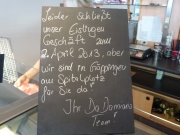 Leider schließt
unser Eislingen
Geschäft zum
2. April 2013, aber
wir sind in Göppingen
am Spitalplatz
für Sie da!
Ihr Da Damiano
Team!